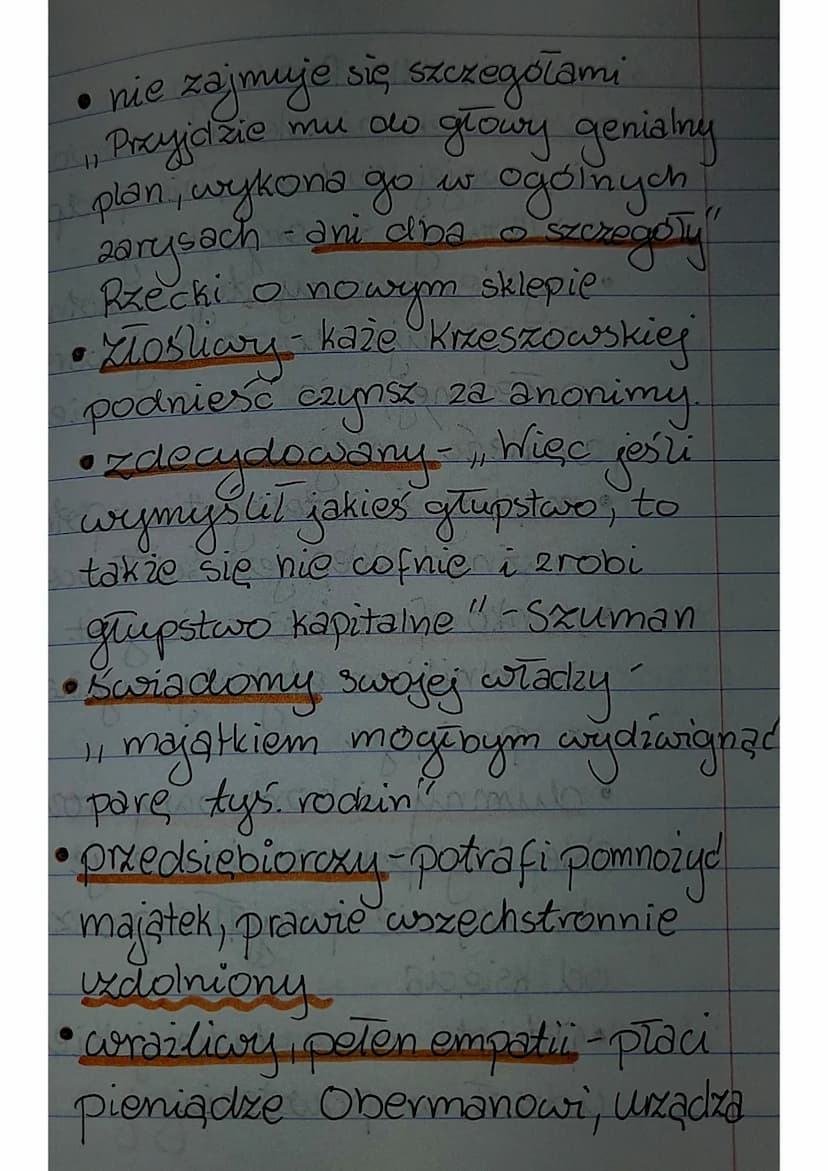 • nie zajmuje się szczegółami
„Przyjdzie mu do głowy genialny
plan, wykona go w ogólnych
zarysach - ani dba o szczegóły"
Rzecki o nowym sklepie
• złośliwy - każe Krzeszowskiej
podnieść czynsz za anonimy.
• zdecydowany - „Więc jeśli
wymyślił jakieś głupstwo, to
także się nie cofnie i zrobi
głupstwo kapitalne" - Szuman
• świadomy swojej władzy -
„majątkiem mógłbym wydźwignąć
parę tyś. rodzin"
• przedsiębiorczy - potrafi pomnożyć
majątek, prawie wszechstronnie
uzdolniony
• wrażliwy, pełen empatii - płaci
pieniądze Obermanowi, urządza